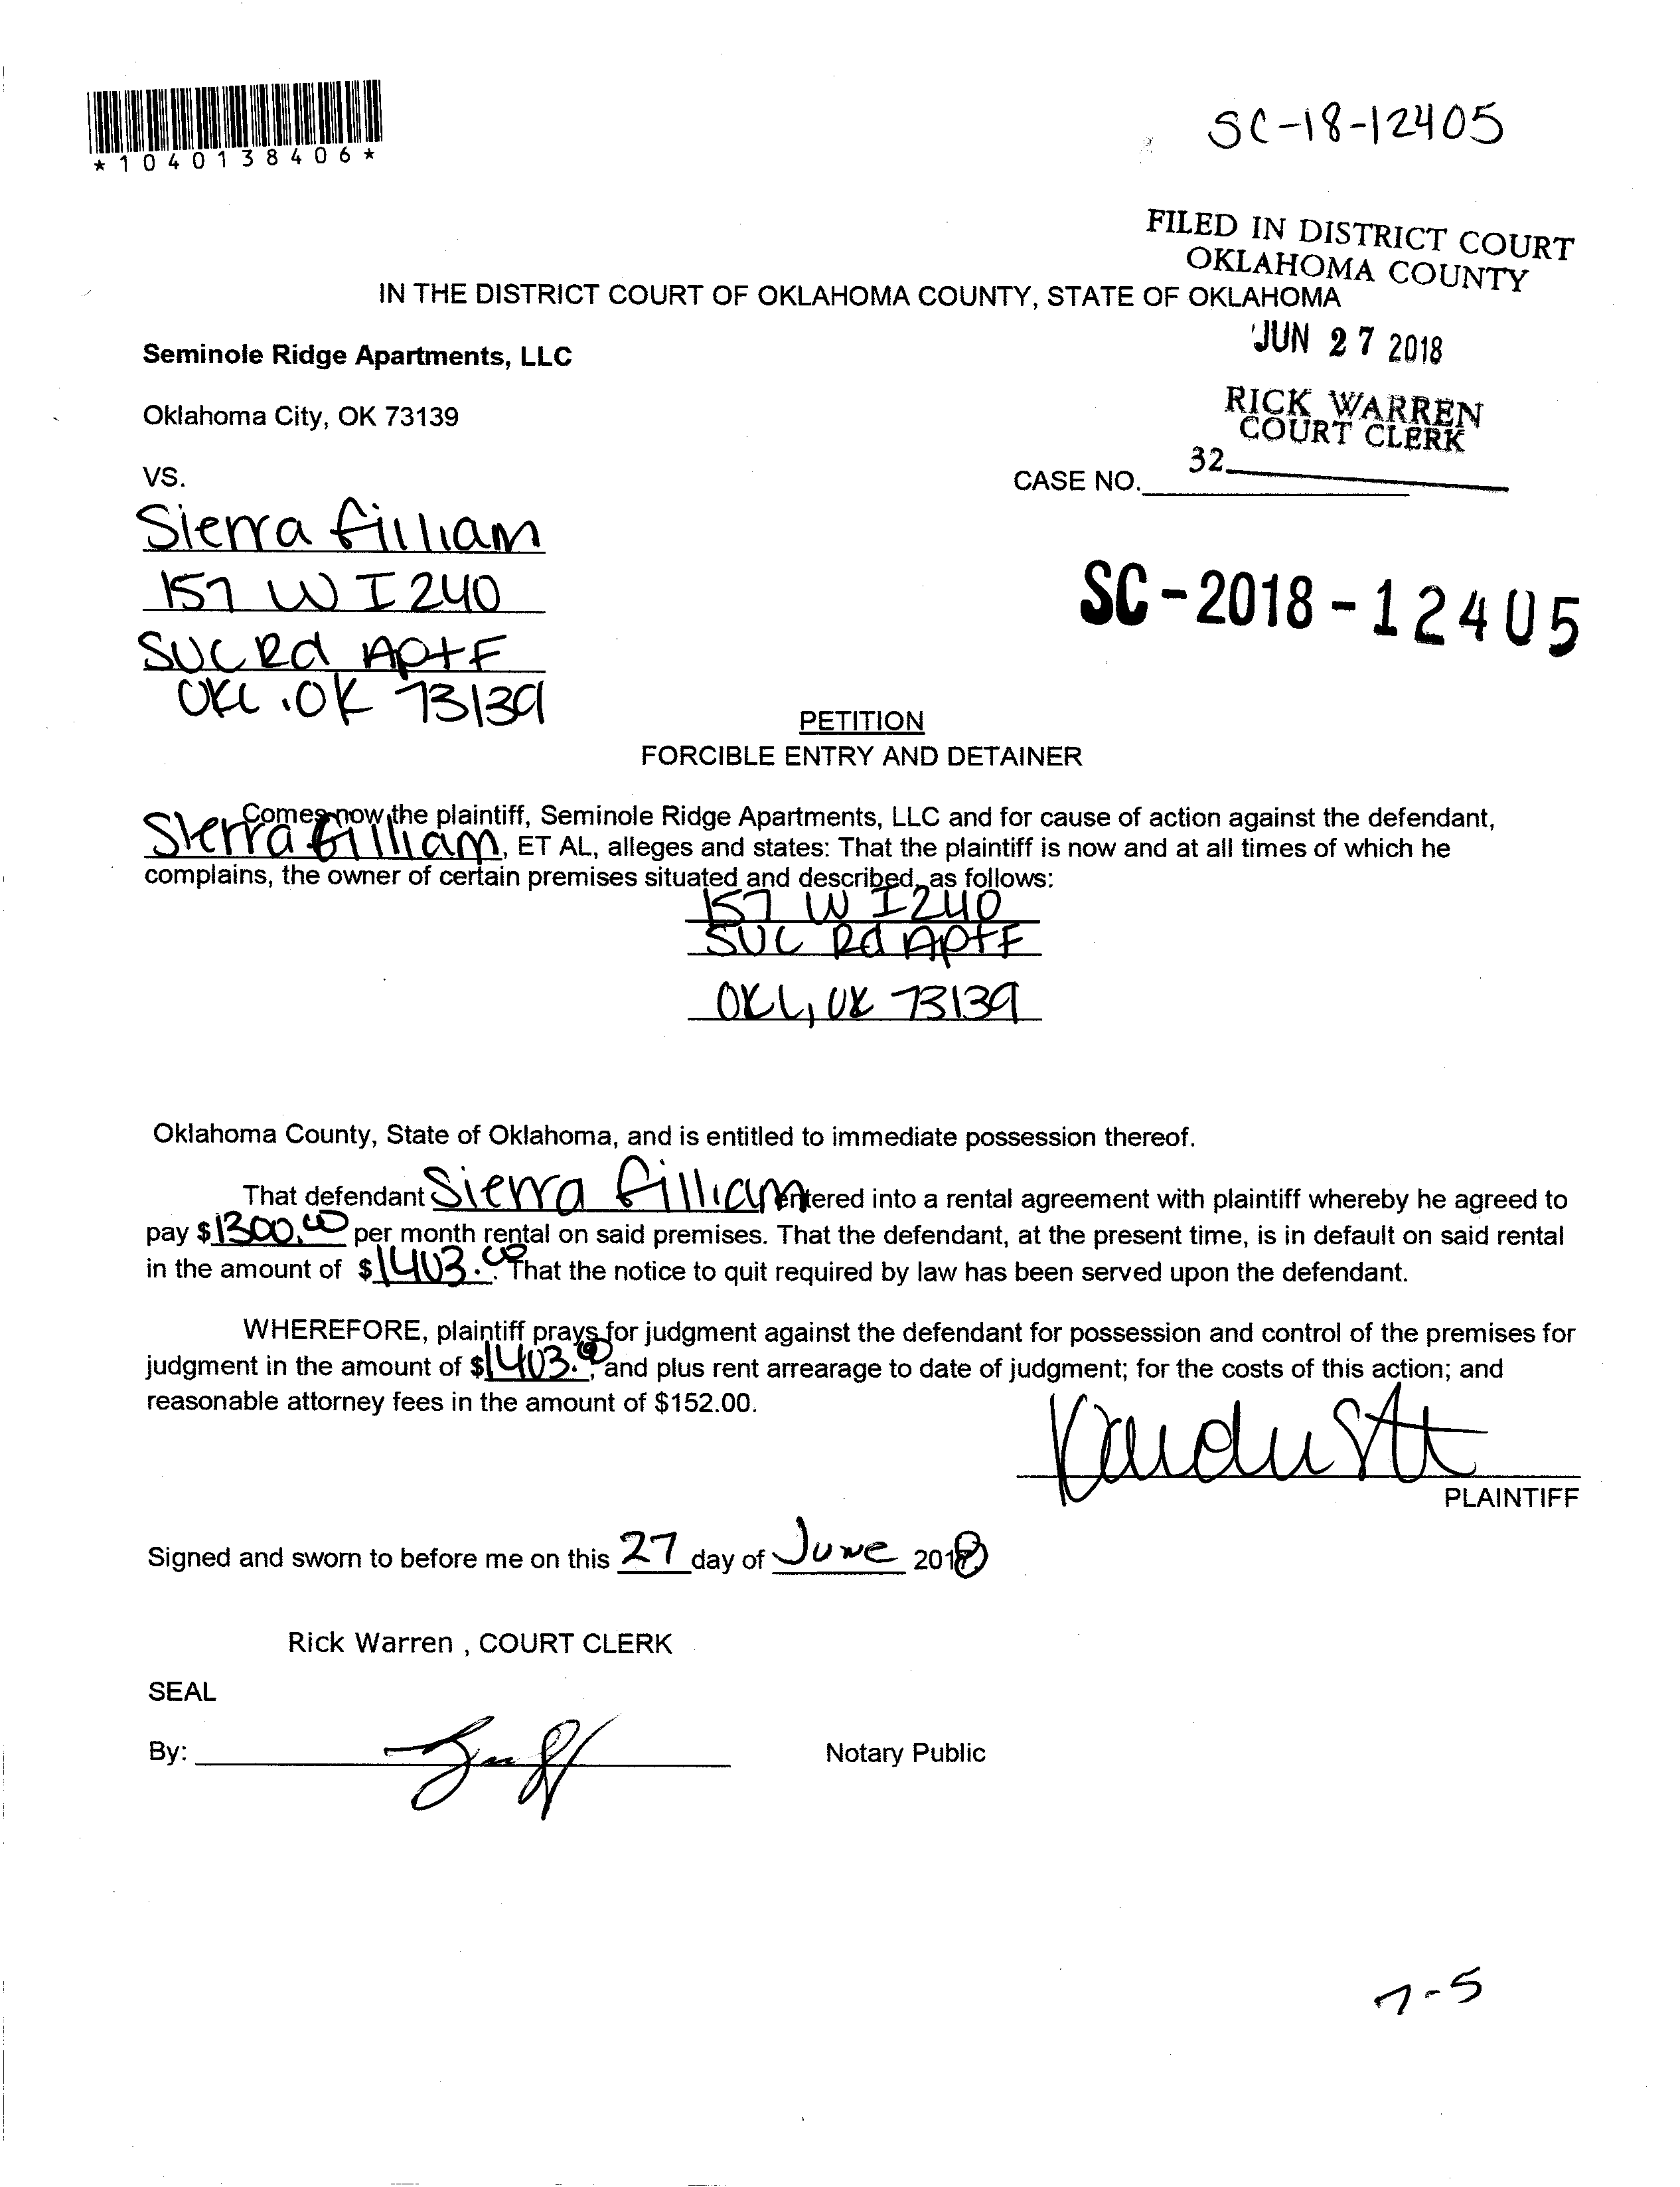 *1040138406*
SC-18-12405
FILED IN DISTRICT COURT
OKLAHOMA COUNTY
IN THE DISTRICT COURT OF OKLAHOMA COUNTY, STATE OF OKLAHOMA
JUN 27 2018
Seminole Ridge Apartments, LLC
RICK WARREN
COURT CLERK
Oklahoma City, OK 73139
32
VS.
CASE NO.
Sierra Gilliam
157 W I 240
SVC Rd Apt F
OKC, OK 73139
SC-2018-12405
PETITION
FORCIBLE ENTRY AND DETAINER
Comes now the plaintiff, Seminole Ridge Apartments, LLC and for cause of action against the defendant,
Sierra Gilliam, ET AL, alleges and states: That the plaintiff is now and at all times of which he
complains, the owner of certain premises situated and described, as follows:
157 W I 240
SVC Rd Apt F
OKC, OK 73139
Oklahoma County, State of Oklahoma, and is entitled to immediate possession thereof.
That defendant Sierra Gilliam entered into a rental agreement with plaintiff whereby he agreed to
pay $1300.00 per month rental on said premises. That the defendant, at the present time, is in default on said rental
in the amount of $1403.00. That the notice to quit required by law has been served upon the defendant.
WHEREFORE, plaintiff prays for judgment against the defendant for possession and control of the premises for
judgment in the amount of $1403.00, and plus rent arrearage to date of judgment; for the costs of this action; and
reasonable attorney fees in the amount of $152.00.
PLAINTIFF
Signed and sworn to before me on this 27 day of June 2018
Rick Warren , COURT CLERK
SEAL
By:
Notary Public
7-5